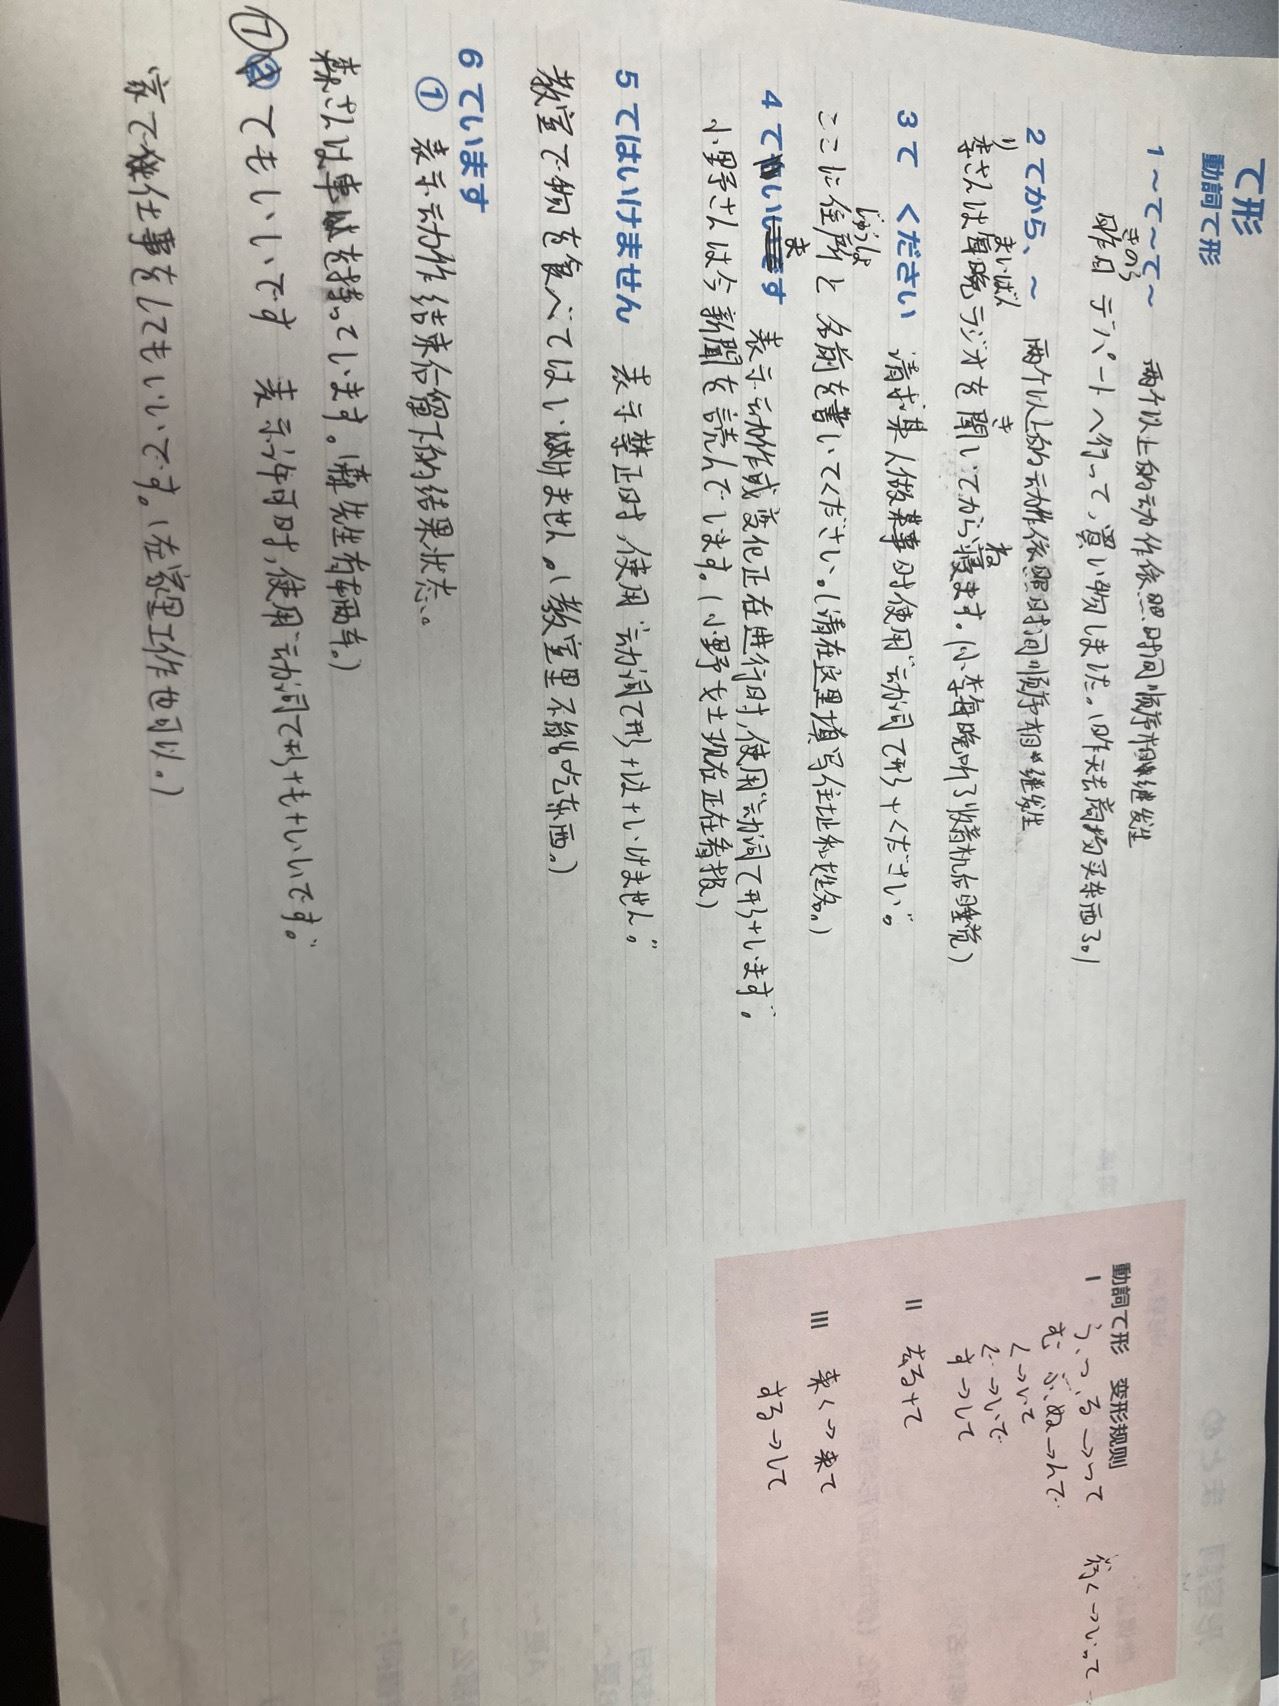 て形
動詞て形
1 ～て～て～ 两个以上的动作依照时间顺序相继发生
きのう
昨日 デパートへ行って、買い物しました。(昨天去商场买东西了。)
2 てから、～ 两个以上的动作依照时间顺序相继发生
り まいばん き ね
李さんは毎晩ラジオを聞いてから寝ます。(小李每晚听了收音机后睡觉)
3 て ください 请求某人做某事时使用“动词て形+ください”。
じゅうしょ
ここに住所と名前を書いてください。(请在这里填写住址和姓名。)
4 ています 表示动作或变化正在进行时,使用“动词て形+います”。
小野さんは今新聞を読んでいます。(小野女士现在正在看报)
5 てはいけません 表示禁止时,使用“动词て形+は+いけません。”
教室で物を食べてはいけません。(教室里不能吃东西。)
6 ています
① 表示动作结束后留下的结果状态。
森さんは車を持っています。(森先生有辆车。)
⑦ てもいいです 表示许可时,使用“动词て形+も+いいです。”
家で仕事をしてもいいです。(在家里工作也可以。)
動詞て形 变形规则
I う、つ、る→って 行く→いって
む ぶ、ぬ→んで
く→いて
ぐ→いで
す→して
II 去る+て
III 来く→来て
する→して